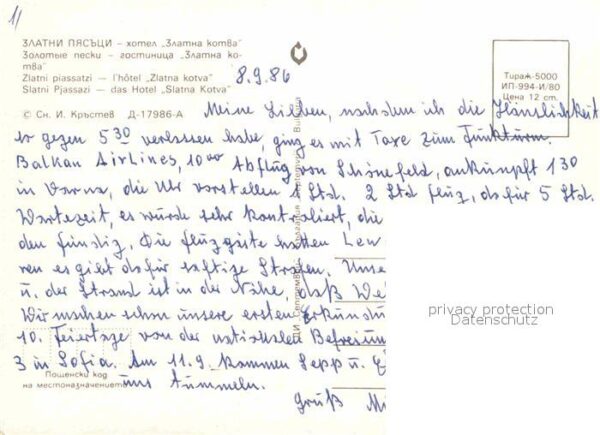 1/
ЗЛАТНИ ПЯСЪЦИ – хотел „Златна котва"
Золотые пески – гостиница „Златна ко-
тва"
Zlatni piassatzi — l'hôtel „Zlatna kotva"
Slatni Pjassazi — das Hotel „Slatna Kotva"
© Сн. И. Кръстев Д-17986-А
Тираж-5000
ИП-994-И/80
Цена 12 ст.
8.9.86
Meine Lieben, nachdem ich die Häuslichkeit
gegen 5 30 verlassen habe, ging es mit Taxe zum Funkturm.
Balkan Airlines, 10 00 Abflug von Schönefeld, Ankunft 1 30
in Varna, die Uhr vorstellen 1 Std. 2 Std Flug, dafür 5 Std.
Wartezeit, es würde sehr kontroliert, die
den fündig. Die Fluggäste hatten
ren es gibt dafür saftige Strafen. Unse
u. der Strand ist in der Nähe, daß We
Wir machen schon unsere ersten Erkundu
10. Feiertage von der nationalen Befreiun
3 in Sofia. Am 11.9. kommen Sepp u.
uns tummeln.
Gruß Mi
Пощенски код
на местоназначението
privacy protection
Datenschutz